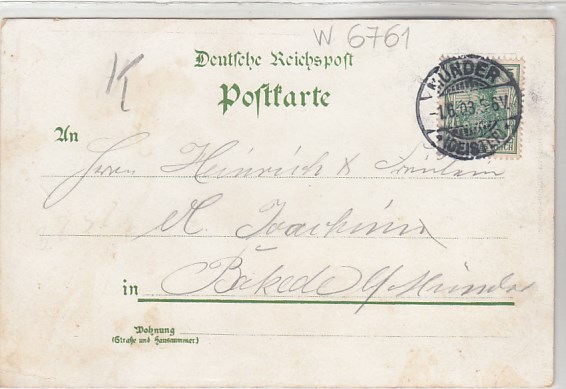 W 6761
K
Deutsche Reichspost
Postkarte
MÜNDER
1.6.03. 5-6V.
(DEISTER)
An
Herrn Heinrich & Fräulein
A. Joachim
in Bakede b/Münder
Wohnung
(Straße und Hausnummer)